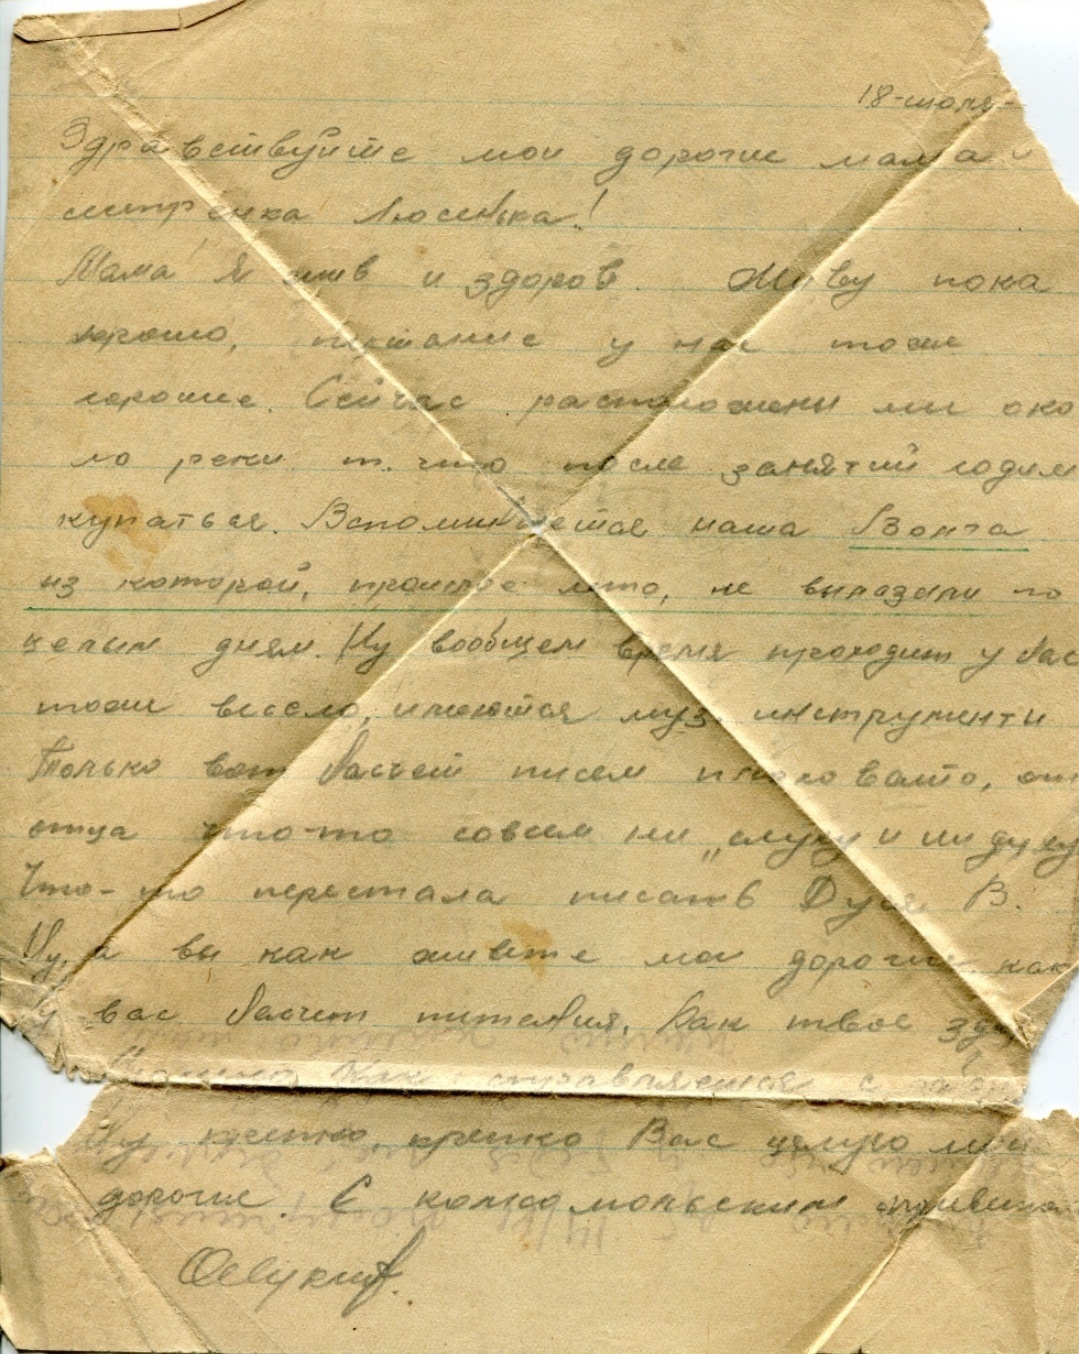 18-июля
Здравствуйте мои дорогие мама и
систрёнка Люсинька!
Мама Я жив и здоров. Живу пока
хорошо, питание у нас тоже
хорошее. Сейчас расположены ми око
ло реки т. что после занятий ходим
купаться. Вспоминается наша Волга
из которой, прошлое лето, не вылазили по
целым дням. Ну вообщем время проходит у нас
тоже весело, имеются муз. инструменты
Только вот насчет писем плоховато, от
отца что-то совсем ни „слуху и ни духу
Что-то перестала писать Дуся В.
Ну, а вы как живете мои дорогие, как
у вас насчет питания, Как твое здо
Как справляешся с
Ну крепко, крепко Вас целую мои
дорогие. С комсомольским приветом